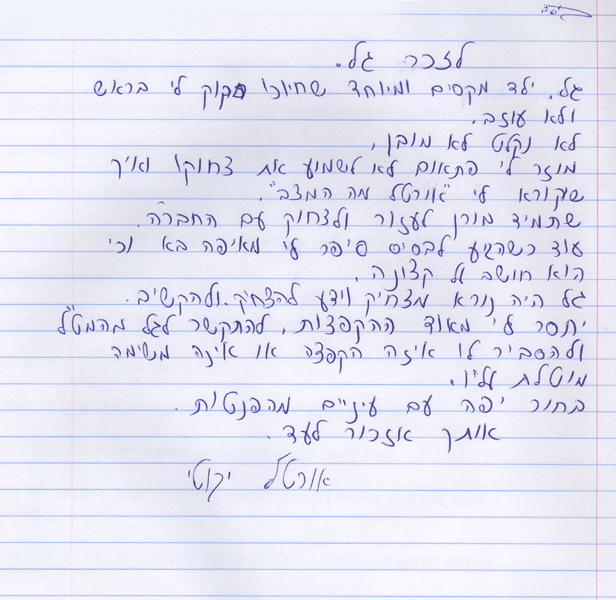 בס"ד
לזכר גל.
גל, ילד מקסים ומיוחד שחיוכו חקוק לי בראש
ולא עוזב.
לא נקלט לא מובן,
מוזר לי פתאום לא לשמוע את צחוקו ואיך
שקורא לי "אורטל מה המצב".
שתמיד מוכן לעזור ולצחוק עם החברה.
עוד כשהגיע לבסיס סיפר לי מאיפה בא וכי
הוא חושב על קצונה.
גל היה נורא מצחיק וידע להצחיק.ולהקשיב.
יחסר לי מאוד ההקפצות, להתקשר לגל מהמט"ל
ולהסביר לו איזה הקפצה או איזה משימה
מוטלת עליו.
בחור יפה עם עיניים מהפנטות.
אותך אזכור לעד.
אורטל יקוטי